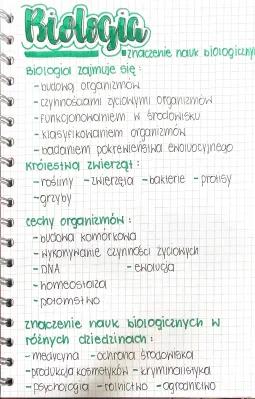 Biologia
•znaczenie nauk biologicznych
Biologia zajmuje się:
-budową organizmów
-czynnościami życiowymi organizmów
-funkcjonowaniem w środowisku
-klasyfikowaniem organizmów
-badaniem pokrewieństwa ewolucyjnego
Królestwa zwierząt:
-rośliny -zwierzęta -bakterie -protisy
-grzyby
cechy organizmów:
-budowa komórkowa
-wykonywanie czynności życiowych
-DNA -ewolucja
-homeostaza
-potomstwo
znaczenie nauk biologicznych w
różnych dziedzinach:
-medycyna -ochrona środowiska
-produkcja kosmetyków -kryminalistyka
-psychologia -rolnictwo -ogrodnictwo